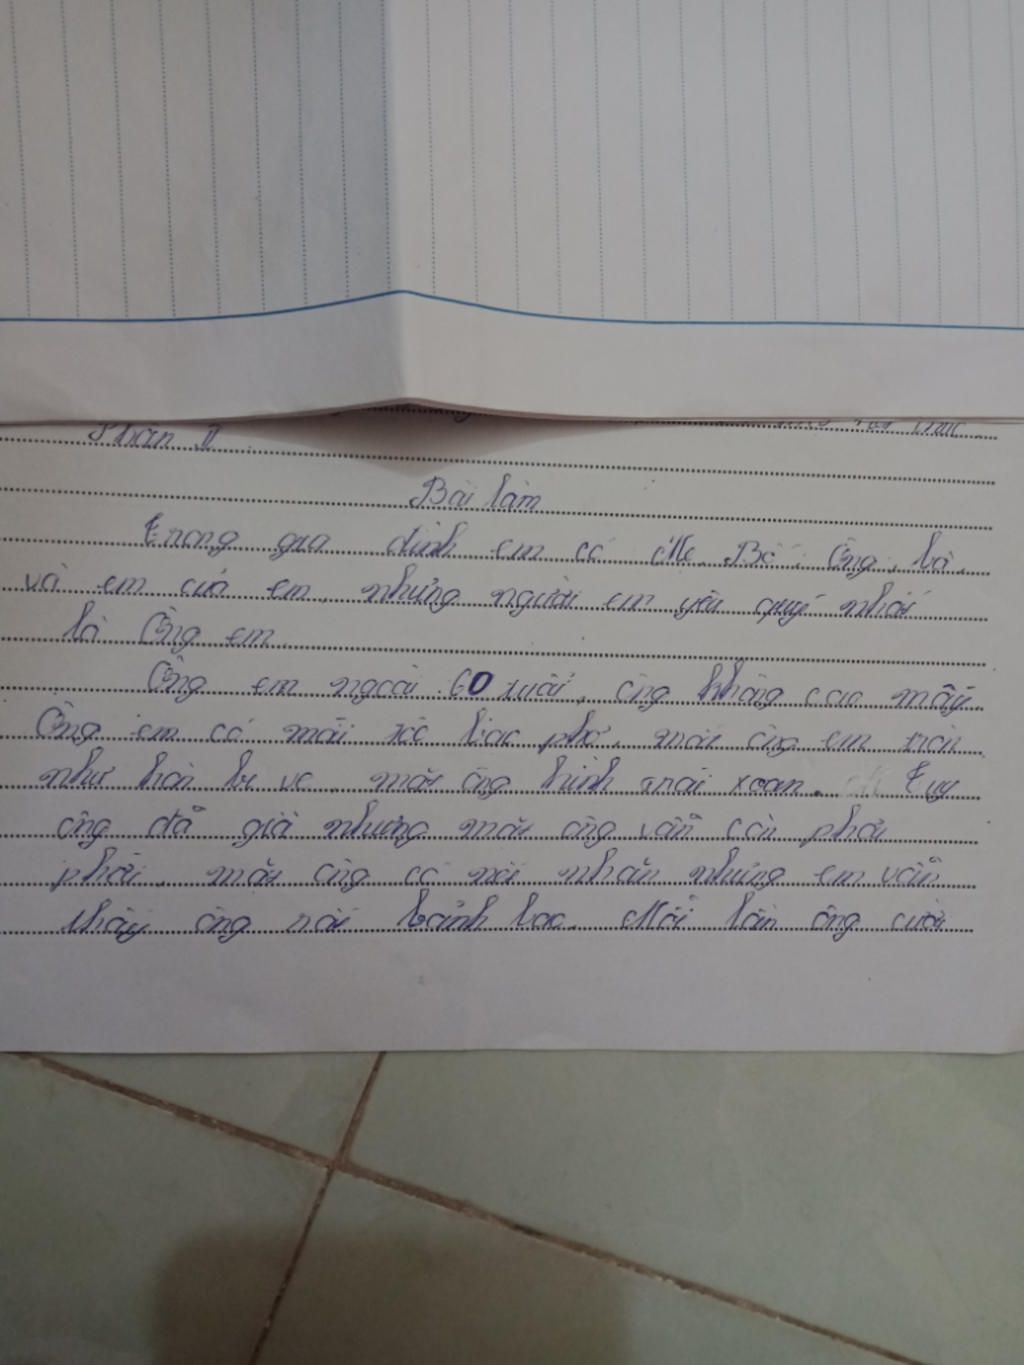 Phần II
Bài làm
Trong gia đình em có Mẹ, Bố, Ông, bà,
và em của em, những người em yêu quý nhất
là Ông em.
Ông em ngoài 60 tuổi, ông không cao mấy.
Ông em có mái tóc bạc phơ, mắt ông em tròn
như hòn bi ve, mặt ông hình trái xoan. Tuy
ông đã già nhưng mắt ông vẫn còn
mặt ông có nhăn nhưng em vẫn
thấy ông nói Mỗi lần ông cười